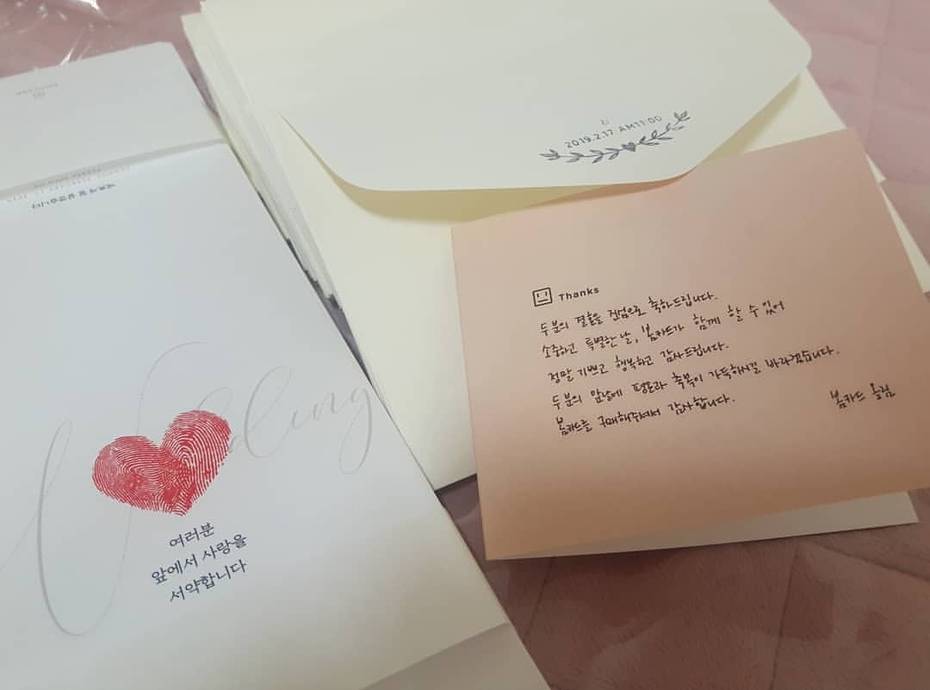 2019.2.17 AM11:00
Thanks
두분의 결혼을 진심으로 축하드립니다.
소중하고 특별한 날, 봄카드가 함께 할 수 있어
정말 기쁘고 행복하고 감사드립니다.
두분의 앞날에 평온과 축복이 가득하시길 바라겠습니다.
봄카드를 구매해주셔서 감사합니다.
봄카드 올림
Wedding
여러분
앞에서 사랑을
서약합니다